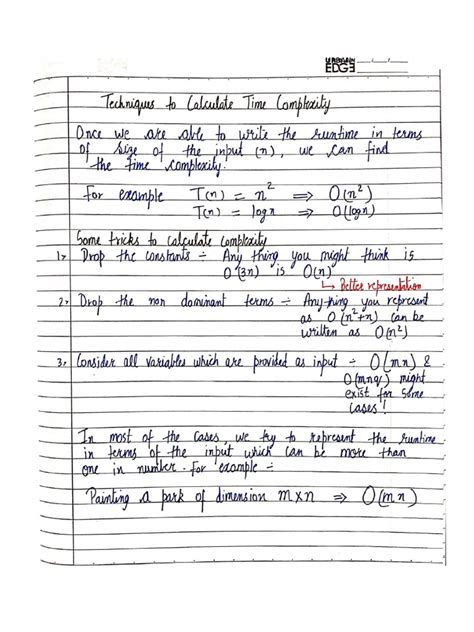 URBAN
EDGE
Techniques to Calculate Time Complexity
Once we are able to write the runtime in terms
of size of the input (n), we can find
the time complexity.
For example T(n) = n² ⇒ O(n²)
T(n) = log n ⇒ O(log n)
Some tricks to calculate complexity
1> Drop the constants ÷ Any thing you might think is
O(3n) is O(n)
↳ Better representation
2> Drop the non dominant terms ÷ Any thing you represent
as O(n²+n) can be
written as O(n²)
3> Consider all variables which are provided as input ÷ O(mn) &
O(mnq) might
exist for some
cases!
In most of the cases, we try to represent the runtime
in terms of the input which can be more than
one in number. For example ÷
Painting a park of dimension m×n ⇒ O(mn)